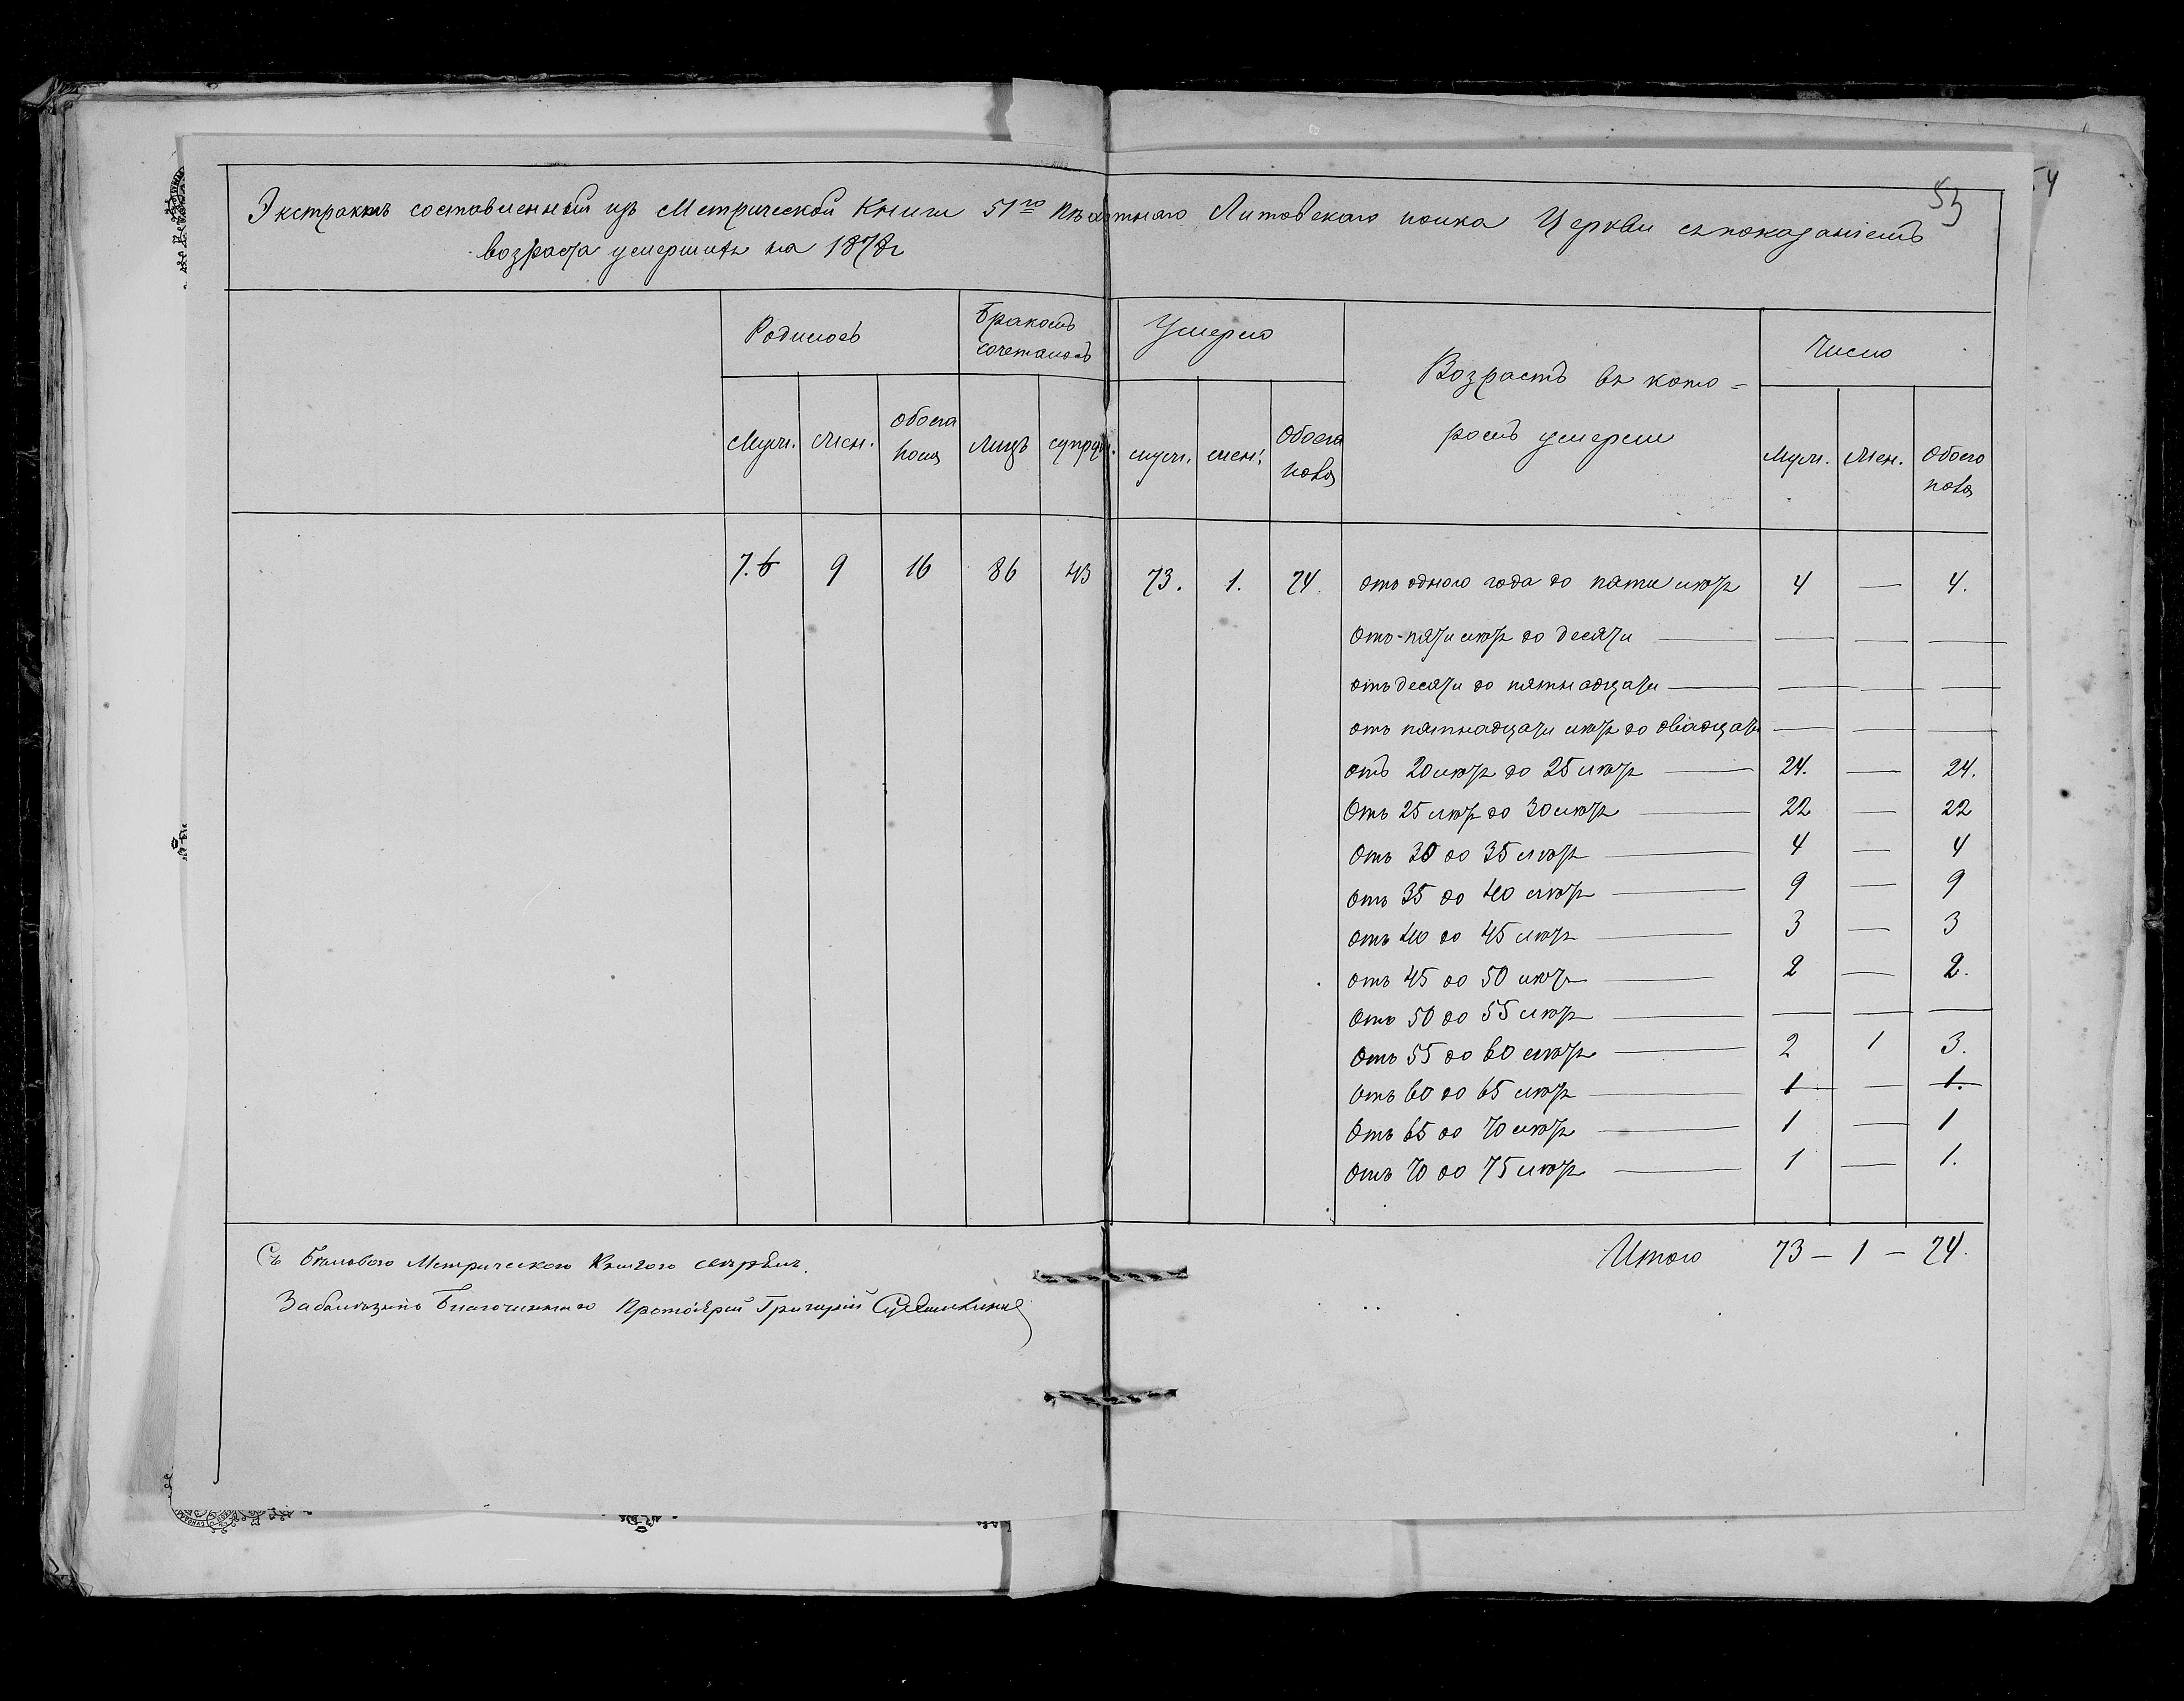 53
54
Экстрактъ составленный изъ Метрической Книги 51го пѣхотнаго Литовскаго полка Церкви съ показаніемъ
возраста умершихъ на 1878г
Родилось Бракомъ Умерло Возрастъ въ кото- Число
сочеталось
ромъ умерли
Муж. Жен. Обоего Лицъ супруж. муж. жен. Обоего Муж. Жен. Обоего
пола пола пола
7. 6 9 16 86 43 73. 1. 74. отъ одного года до пяти лѣтъ 4 — 4.
Отъ-пяти лѣтъ до десяти — — — —
отъ десяти до пятнадцати — — — —
отъ пятнадцати лѣтъ до двадцати — — —
отъ 20 лѣтъ до 25 лѣтъ — 24. — 24.
Отъ 25 лѣтъ до 30 лѣтъ — 22 — 22
Отъ 30 до 35 лѣтъ — 4 — 4
Отъ 35 до 40 лѣтъ — 9 — 9
Отъ 40 до 45 лѣтъ — 3 — 3
Отъ 45 до 50 лѣтъ — 2 — 2.
Отъ 50 до 55 лѣтъ — — — —
Отъ 55 до 60 лѣтъ — 2 1 3.
Отъ 60 до 65 лѣтъ — 1 — 1.
Отъ 65 до 70 лѣтъ — 1 — 1
Отъ 70 до 75 лѣтъ — 1 — 1.
Итого 73 — 1 — 74.
Съ Бѣловою Метрическою Книгою свѣрялъ
Благочиннаго Протоіерей Григорій